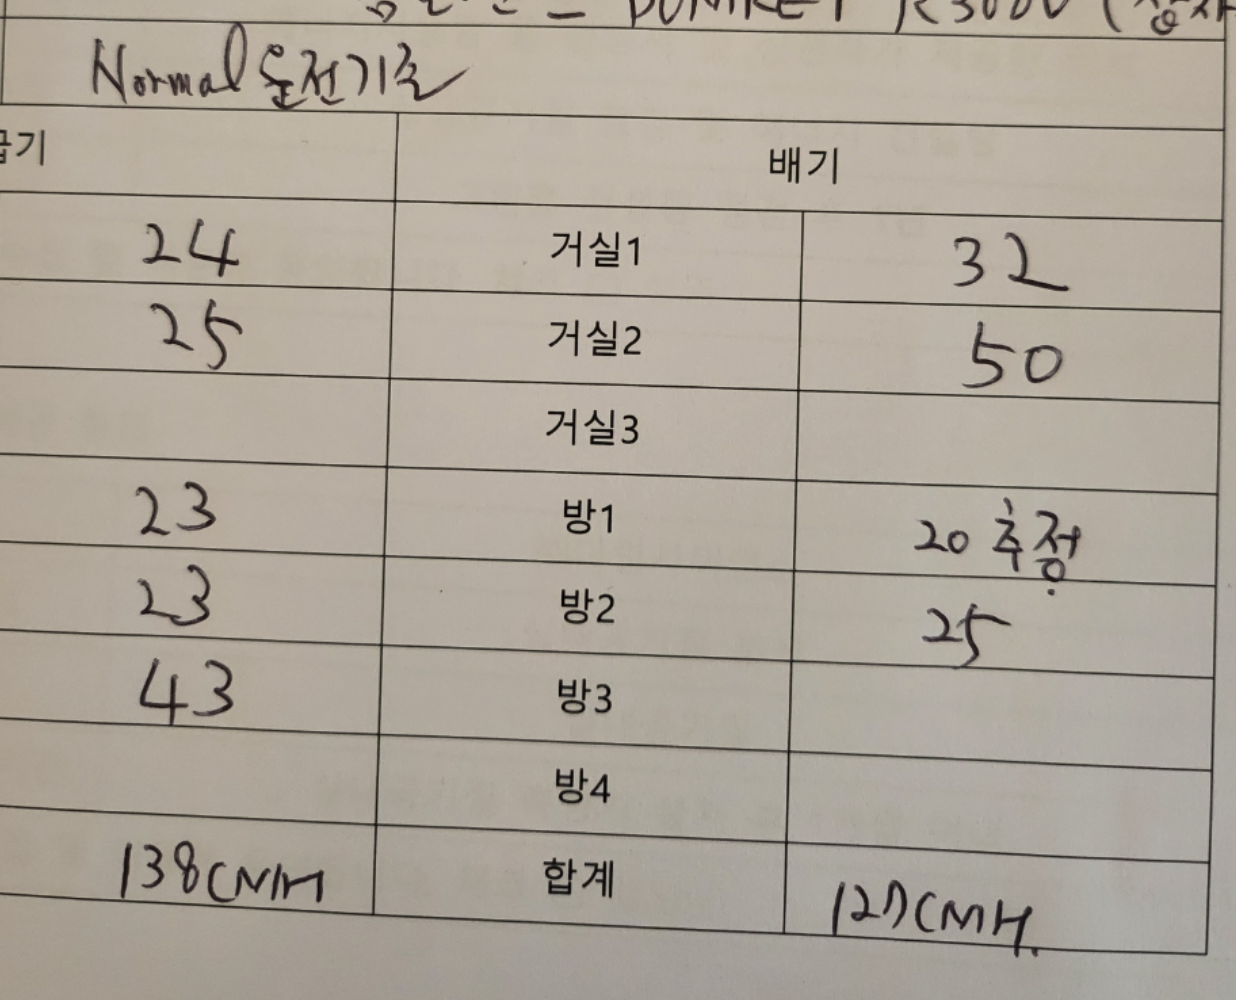 R3000 (
Normal 운전기준
급기 배기
24 거실1 32
25 거실2 50
거실3
23 방1 20 추정
23 방2 25
43 방3
방4
138CMH 합계 127CMH.